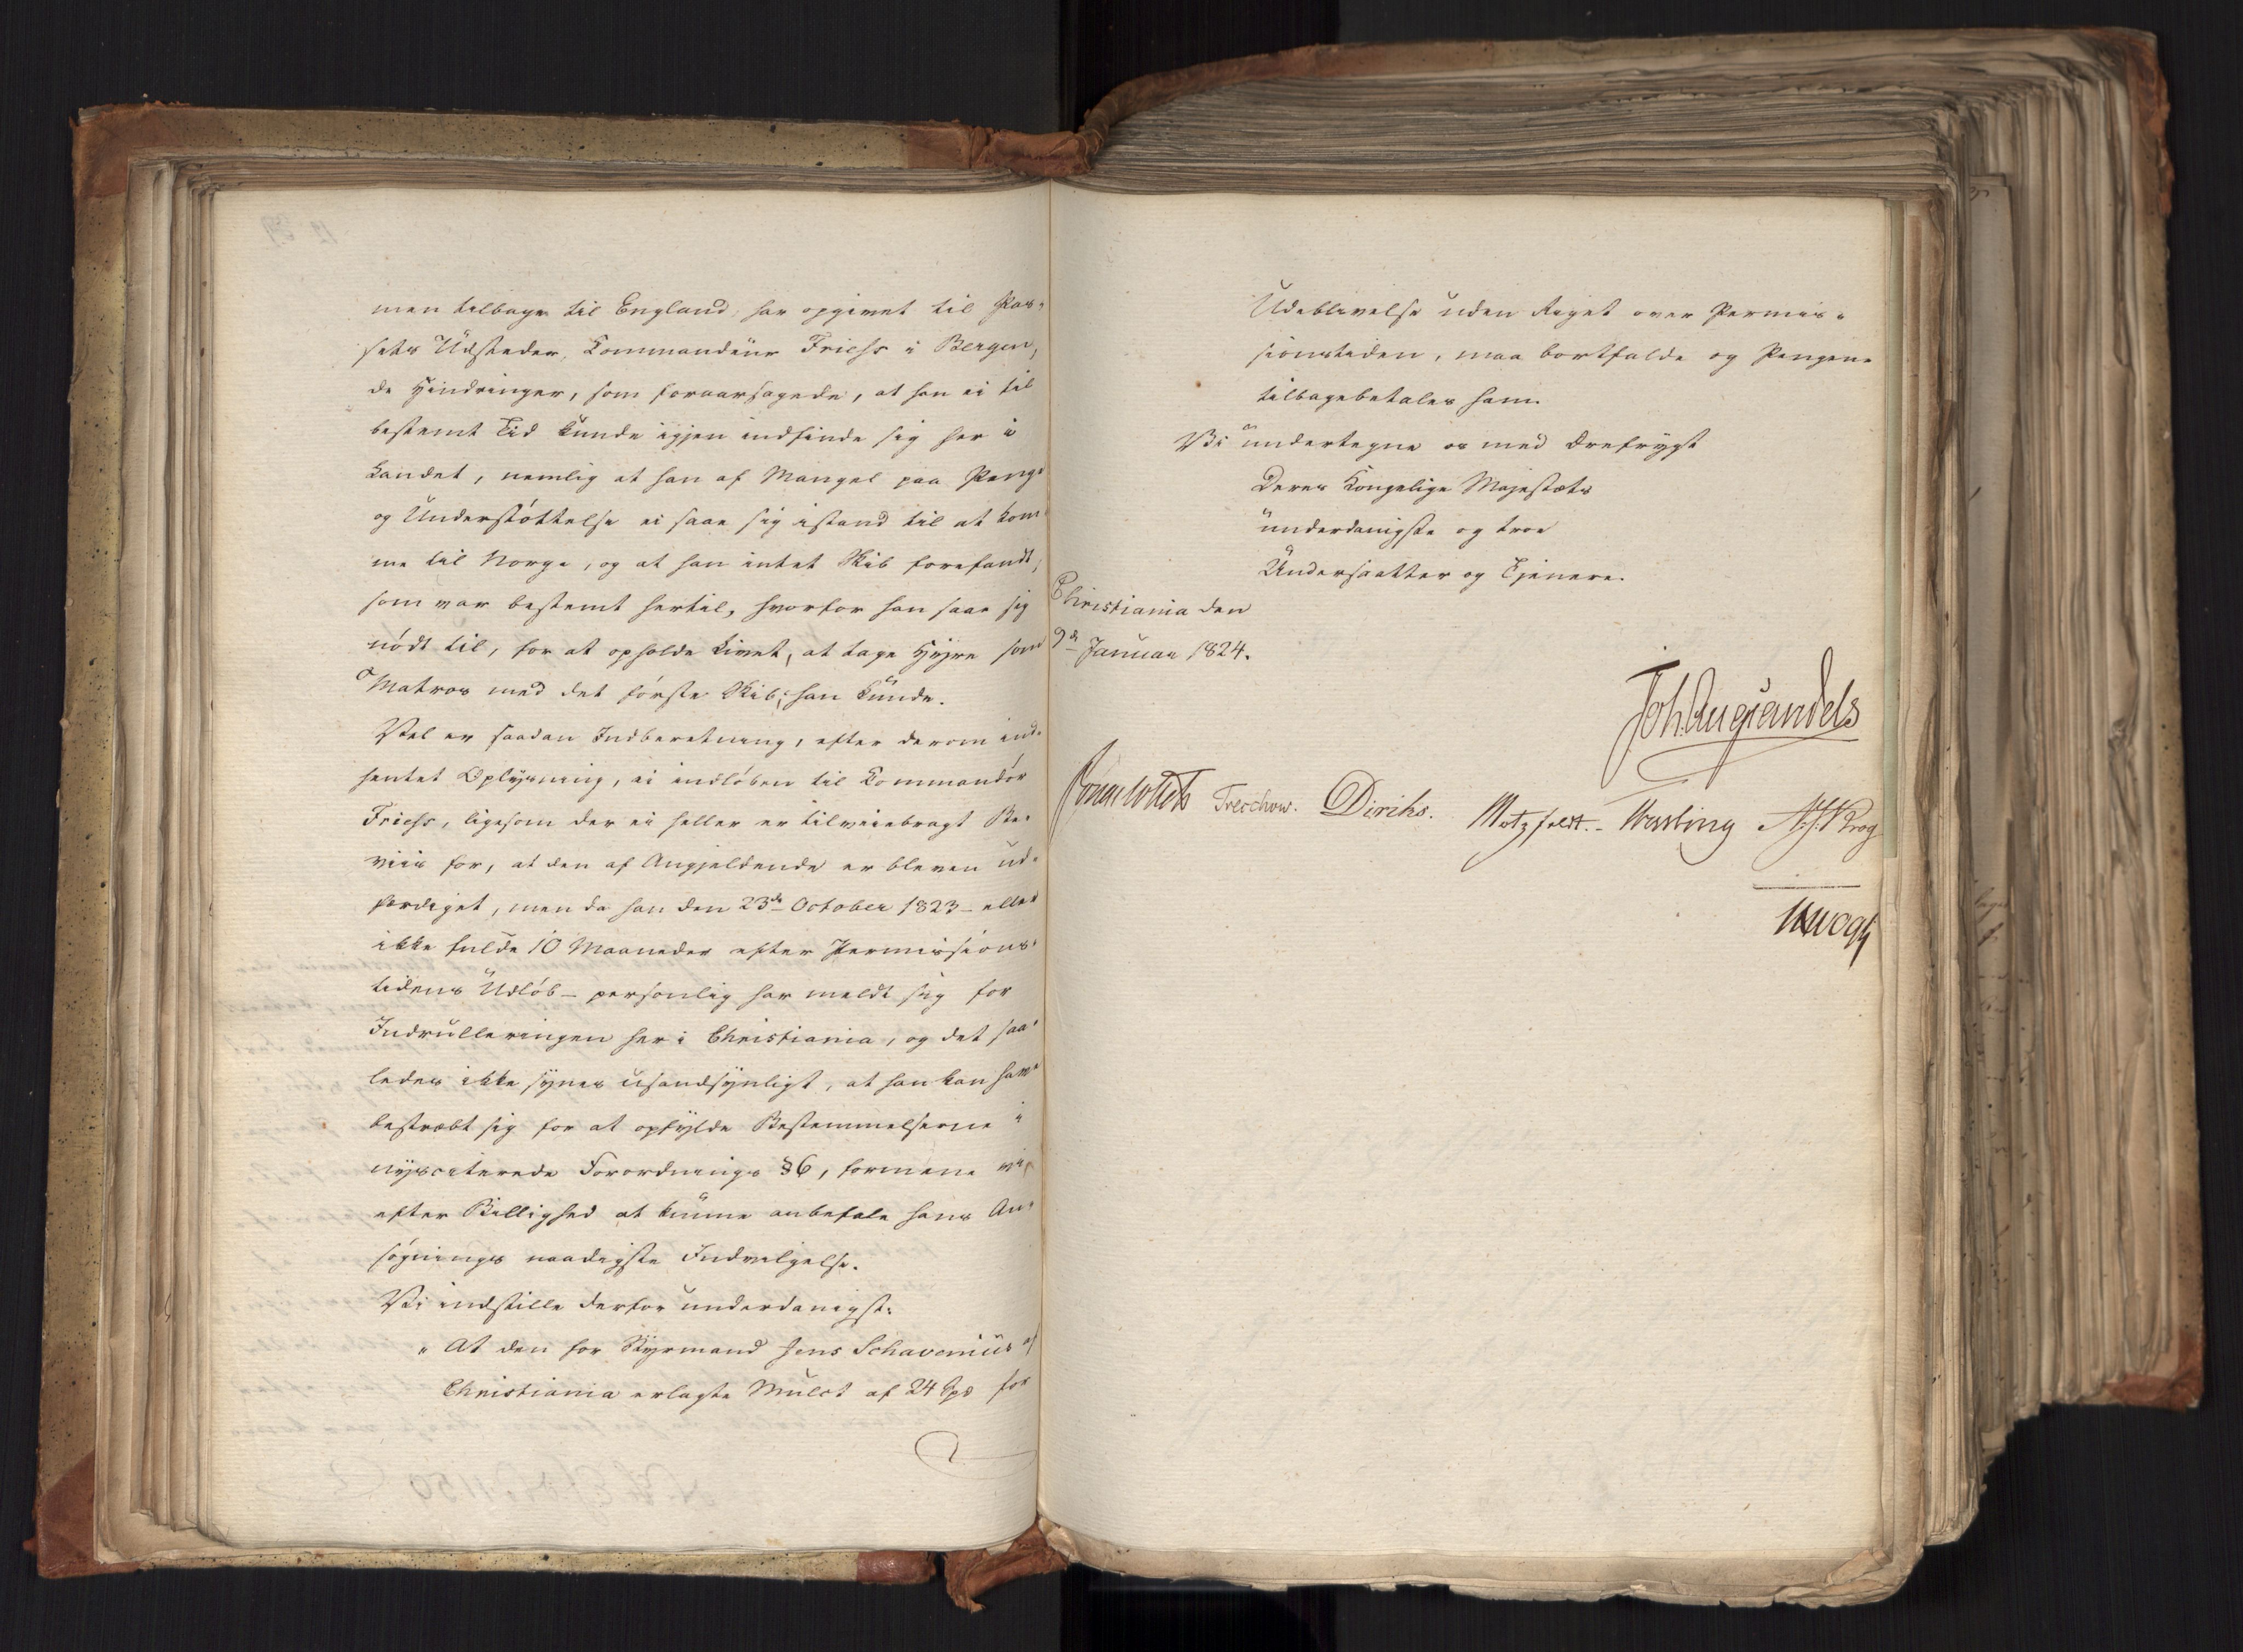 men tilbage til England, har opgivet til Pas-
sets Udsteder, Commandeur Friess i Bergen,
de Hindringer, som foraarsagede, at han ei til
bestemt Tid kunde igjen indfinde sig her i
Landet, nemlig at han af Mangel paa Penge
og Understøttelse ei saae sig istand til at kom
me til Norge, og at han intet Skib forefandt,
som var bestemt hertil, hvorfor han saae sig
nødt til, for at opholde Livet, at tage Hyre som
Matros med det første Skib, han kunde.
Vel er saadan Indberetning, efter derom ind-
hentet Oplysning, ei indløben til Commandør
Friess, ligesom der ei heller er tilveiebragt Be-
viis for, at den af Angjeldende er bleven ud-
færdiget, men da han den 23de October 1823 - eller
ikke fulde 10 Maaneder efter Permissions-
tidens Udløb - personlig har meldt sig for
Indrulleringen her i Christiania, og det saa-
ledes ikke synes usandsynligt, at han kan have
bestræbt sig for at opfylde Bestemmelserne i
nysciterede Forordnings § 6, formene vi,
efter Billighed at kunne anbefale hans An-
søgnings naadigste Indvilgelse.
Vi indstille derfor underdanigst:
" At den for Styrmand Jens Schavenius af
Christiania erlagte Mulct af 24 Spd for
Udeblivelse uden Riget over Permis-
sionstiden, maa bortfalde og Pengene
tilbagebetales ham.
Vi undertegne os med Ærefrygt
Deres Kongelige Majestæts
underdanigste og troe
Undersaatter og Tjenere.
Christiania den
9de Januar 1824.
Joh. Aug Sandels
Jonas Collett Treschow. Diriks. Motzfeldt. - Wasling N. J. Krog